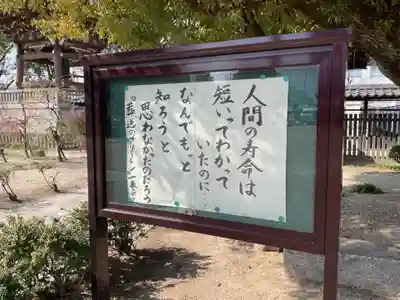 人間の寿命は
短いってわかって
いたのに…
なんでもっと
知ろうと
思わなかったのだろう
『葬送のフリーレン』より